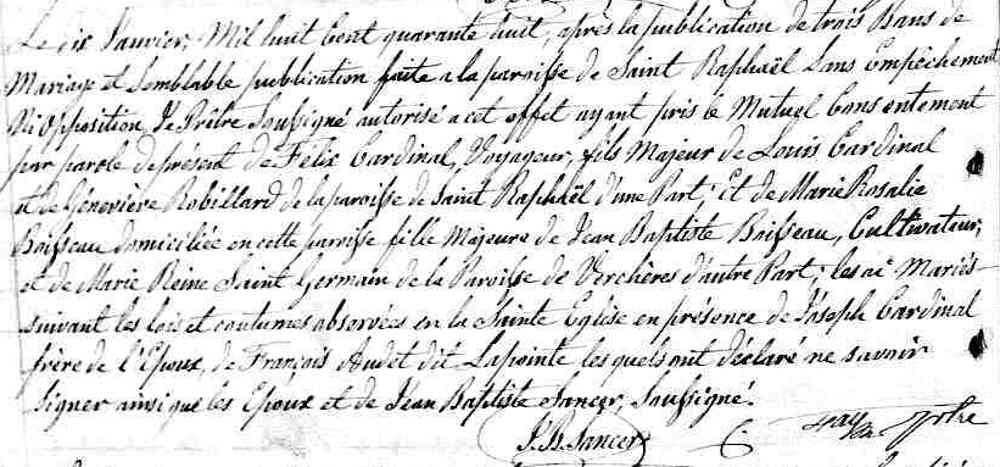 Le dix Janvier, Mil huit Cent quarante huit, après la publication de trois Bans de
Mariage et Semblable publication faite a la paroisse de Saint Raphaël Sans Empêchement
Ni Opposition Je Prêtre Soussigné autorisé a cet effet ayant pris le Mutuel Consentement
par parole de present de Félix Cardinal, Voyageur, fils Majeur de Louis Cardinal
et de Géneviève Robillard de la paroisse de Saint Raphaël d'une Part; Et de Marie Rosalie
Boisseau domiciliée en cette paroisse fille Majeure de Jean Baptiste Boisseau, Cultivateur,
et de Marie Reine Saint Germain de la Paroisse de Verchères d'autre Part; les ai Mariés
suivant les lois et coutumes observées en la Sainte Eglise en présence de Joseph Cardinal
frère de l'Epoux, de François Audet dit Lapointe les quels ont déclaré ne savoir
Signer ainsi que les Epoux et de Jean Baptiste Sancer, Soussigné.
J. B. Sancer Ptre